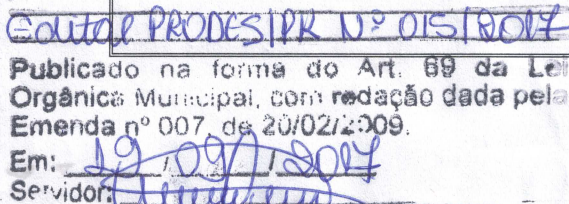 Edital PRODES/PR Nº 015/2017
Publicado na forma do Art. 69 da Lei
Orgânica Municipal, com redação dada pela
Emenda nº 007, de 20/02/2009.
Em: 19 / 09 / 2017
Servidor: